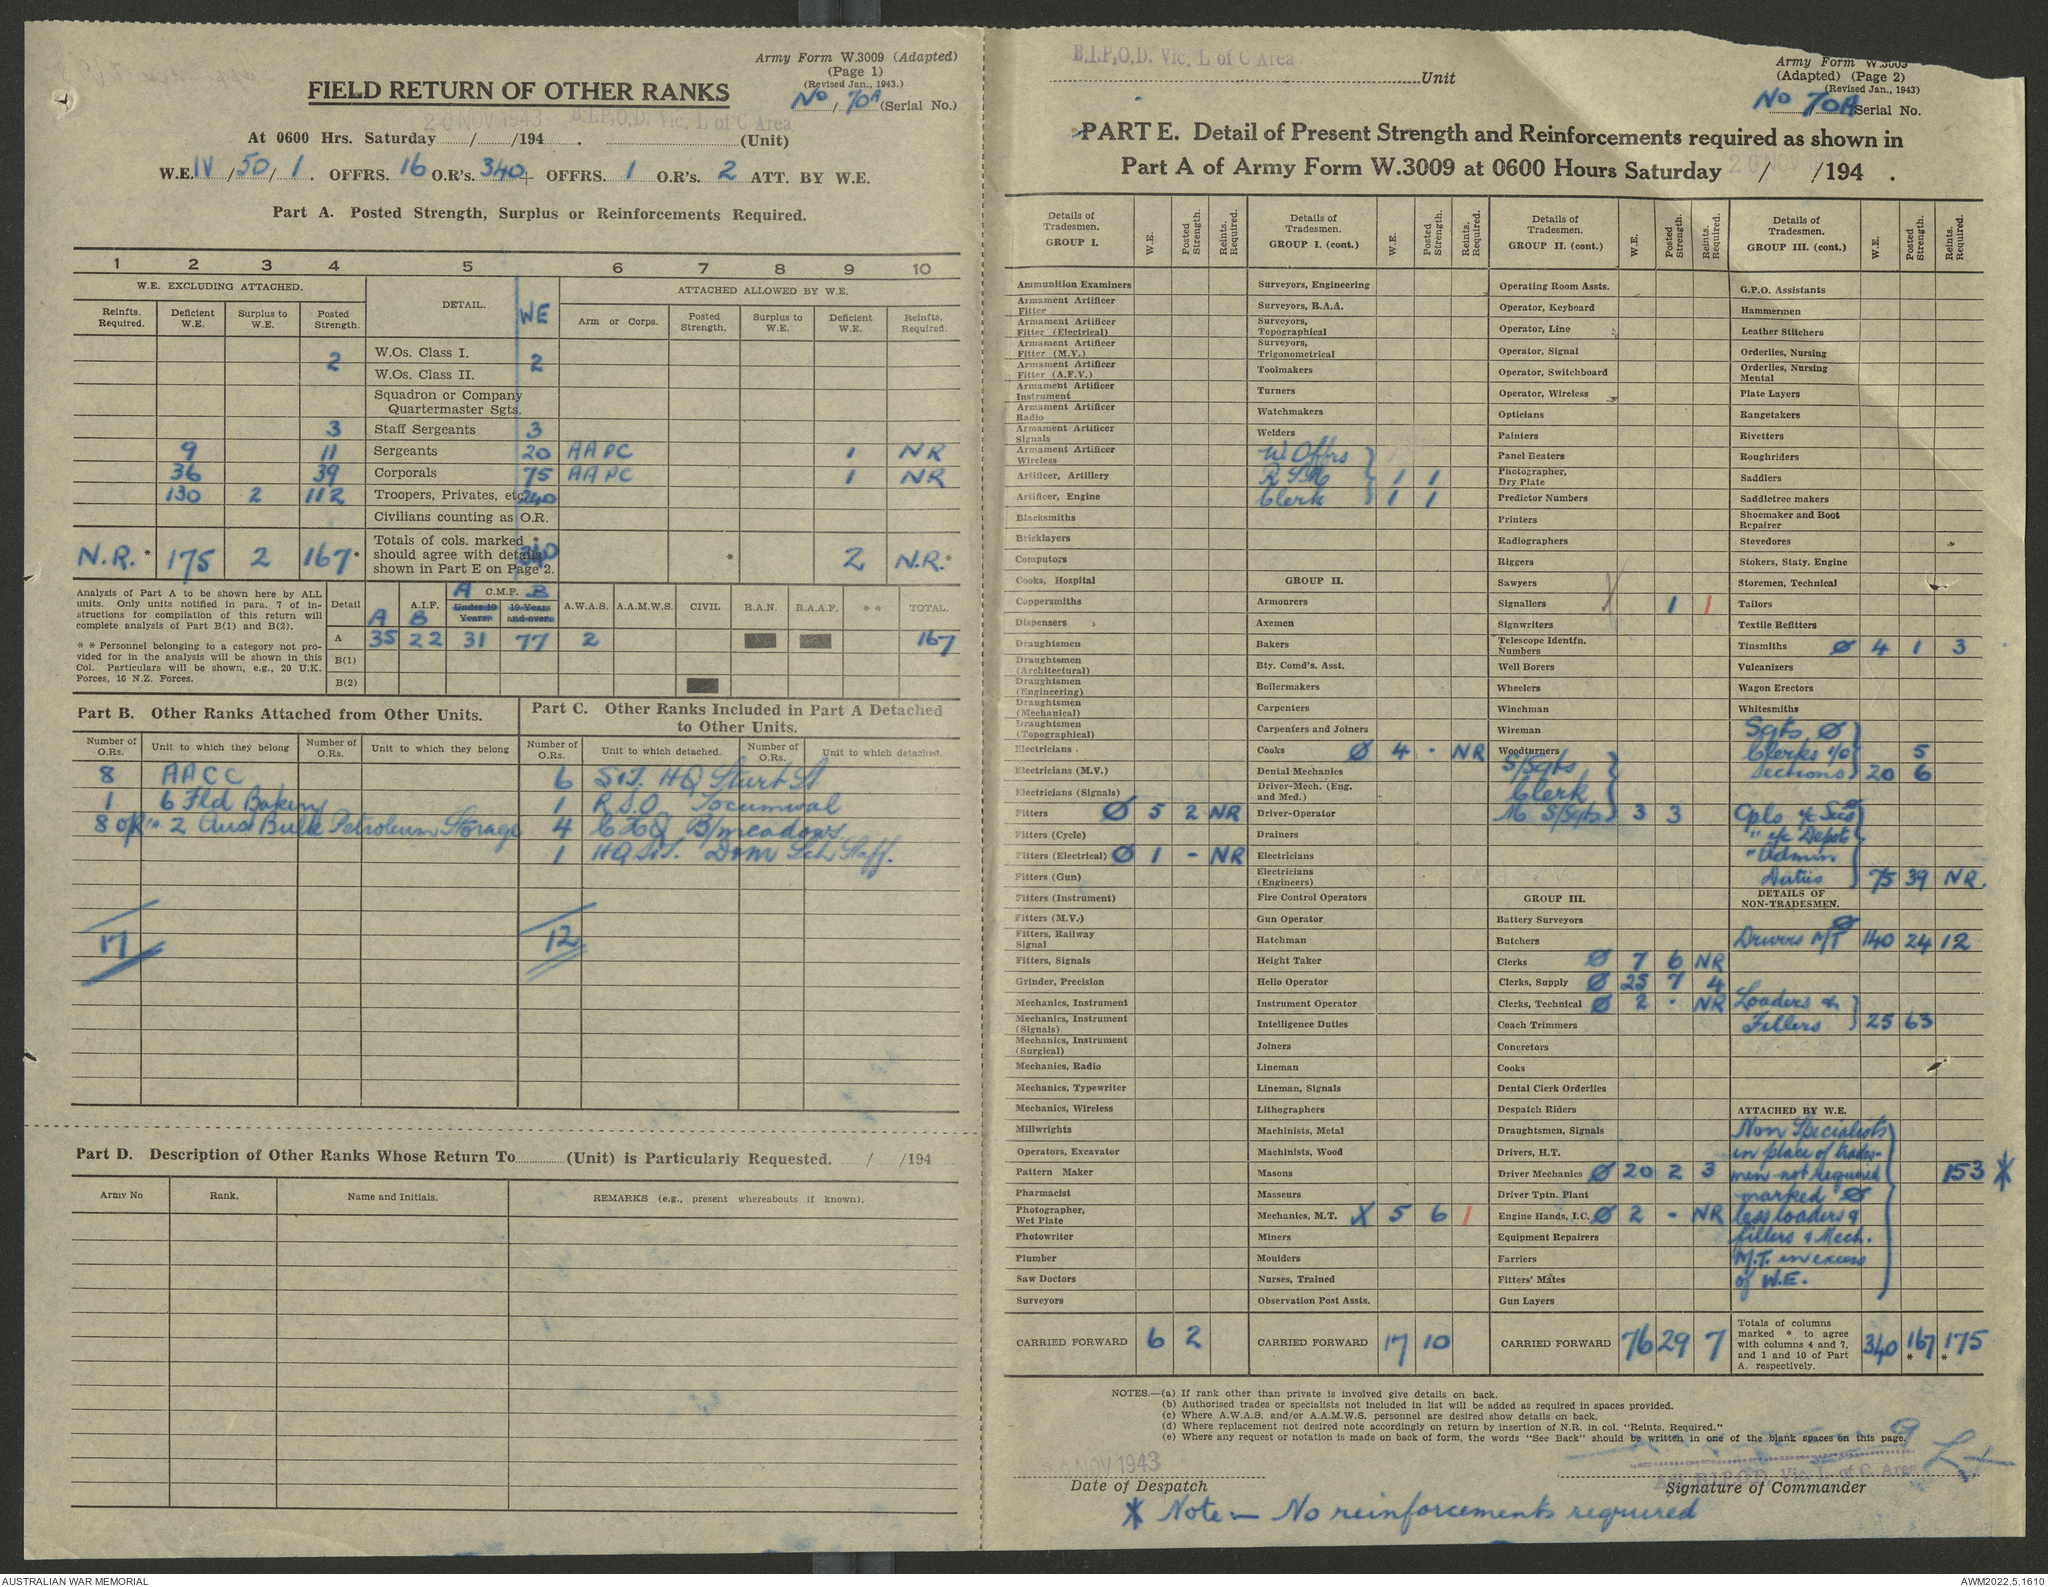 Army Form W.3009 (Adapted)
(Page 1)
(Revised Jan., 1943.)
FIELD RETURN OF OTHER RANKS
No / 70A (Serial No.)
20 NOV 1943 B.I.P.O.D. Vic. L of C Area
At 0600 Hrs. Saturday / /194 . (Unit)
W.E. IV / 50 / 1 . OFFRS. 16 O.R's. 340 + OFFRS. 1 O.R's. 2 ATT. BY W.E.
Part A. Posted Strength, Surplus or Reinforcements Required.
1 2 3 4 5 6 7 8 9 10
W.E. EXCLUDING ATTACHED. DETAIL. WE ATTACHED ALLOWED BY W.E.
Reinfts. Required. Deficient W.E. Surplus to W.E. Posted Strength. Arm or Corps. Posted Strength. Surplus to W.E. Deficient W.E. Reinfts. Required.
2 W.Os. Class I. 2
W.Os. Class II.
Squadron or Company
Quartermaster Sgts.
3 Staff Sergeants 3
9 11 Sergeants 20 AAPC 1 NR
36 39 Corporals 75 AAPC 1 NR
130 2 112 Troopers, Privates, etc. 240
Civilians counting as O.R.
N.R. * 175 2 167 * Totals of cols. marked * should agree with details shown in Part E on Page 2. 340 * 2 N.R. *
Analysis of Part A to be shown here by ALL
units. Only units notified in para. 7 of in-
structions for compilation of this return will
complete analysis of Part B(1) and B(2).
* * Personnel belonging to a category not pro-
vided for in the analysis will be shown in this
Col. Particulars will be shown, e.g., 20 U.K.
Forces, 10 N.Z. Forces.
Detail A.I.F. A B A C.M.F. B Under 19 Years. 19 Years and over. A.W.A.S. A.A.M.W.S. CIVIL R.A.N. R.A.A.F. * * TOTAL.
A 35 22 31 77 2 167
B(1)
B(2)
Part B. Other Ranks Attached from Other Units.
Part C. Other Ranks Included in Part A Detached
to Other Units.
Number of O.Rs. Unit to which they belong Number of O.Rs. Unit to which they belong Number of O.Rs. Unit to which detached. Number of O.Rs. Unit to which detached.
8 AACC 6 S&T. HQ Sturt St
1 6 Fld Bakery 1 R.S.O. Tocumwal
8 2 Aus Bulk Petroleum Storage 4 CHQ B/meadows
1 HQ S&T. Dom Sch Staff.
17 12
Part D. Description of Other Ranks Whose Return To (Unit) is Particularly Requested. / /194
Army No Rank. Name and Initials. REMARKS (e.g., present whereabouts if known).
B.I.P.O.D. Vic. L of C Area
Unit
Army Form W.3009
(Adapted) (Page 2)
(Revised Jan., 1943)
No 70A Serial No.
PART E. Detail of Present Strength and Reinforcements required as shown in
Part A of Army Form W.3009 at 0600 Hours Saturday 20 NOV / /194 .
Details of Tradesmen. GROUP I. W.E. Posted Strength. Reints. Required.
Ammunition Examiners
Armament Artificer Fitter
Armament Artificer Fitter (Electrical)
Armament Artificer Fitter (M.V.)
Armament Artificer Fitter (A.F.V.)
Armament Artificer Instrument
Armament Artificer Radio
Armament Artificer Signals
Armament Artificer Wireless
Artificer, Artillery
Artificer, Engine
Blacksmiths
Bricklayers
Computors
Cooks, Hospital
Coppersmiths
Dispensers
Draughtsmen
Draughtsmen (Architectural)
Draughtsmen (Engineering)
Draughtsmen (Mechanical)
Draughtsmen (Topographical)
Electricians
Electricians (M.V.)
Electricians (Signals)
Fitters Ø 5 2 NR
Fitters (Cycle)
Fitters (Electrical) Ø 1 - NR
Fitters (Gun)
Fitters (Instrument)
Fitters (M.V.)
Fitters, Railway Signal
Fitters, Signals
Grinder, Precision
Mechanics, Instrument
Mechanics, Instrument (Signals)
Mechanics, Instrument (Surgical)
Mechanics, Radio
Mechanics, Typewriter
Mechanics, Wireless
Millwrights
Operators, Excavator
Pattern Maker
Pharmacist
Photographer, Wet Plate
Photowriter
Plumber
Saw Doctors
Surveyors
CARRIED FORWARD 6 2
Details of Tradesmen. GROUP I. (cont.) W.E. Posted Strength. Reints. Required.
Surveyors, Engineering
Surveyors, R.A.A.
Surveyors, Topographical
Surveyors, Trigonometrical
Toolmakers
Turners
Watchmakers
Welders
W. Offrs
R.S.M. 1 1
Clerk 1 1
GROUP II.
Armourers
Axemen
Bakers
Bty. Comd's. Asst.
Boilermakers
Carpenters
Carpenters and Joiners
Cooks Ø 4 - NR
Dental Mechanics
Driver-Mech. (Eng. and Med.)
Driver-Operator
Drainers
Electricians
Electricians (Engineers)
Fire Control Operators
Gun Operator
Hatchman
Height Taker
Helio Operator
Instrument Operator
Intelligence Duties
Joiners
Lineman
Lineman, Signals
Lithographers
Machinists, Metal
Machinists, Wood
Masons
Masseurs
Mechanics, M.T. X 5 6 1
Miners
Moulders
Nurses, Trained
Observation Post Assts.
CARRIED FORWARD 17 10
Details of Tradesmen. GROUP II. (cont.) W.E. Posted Strength. Reints. Required.
Operating Room Assts.
Operator, Keyboard
Operator, Line
Operator, Signal
Operator, Switchboard
Operator, Wireless
Opticians
Painters
Panel Beaters
Photographer, Dry Plate
Predictor Numbers
Printers
Radiographers
Riggers
Sawyers
Signallers X 1 1
Signwriters
Telescope Identfn. Numbers
Well Borers
Wheelers
Winchman
Wireman
Woodturners
S/Sgts
Clerk
M S/Sgts 3 3
GROUP III.
Battery Surveyors
Butchers
Clerks Ø 7 6 NR
Clerks, Supply Ø 25 7 4
Clerks, Technical Ø 2 - NR
Coach Trimmers
Concretors
Cooks
Dental Clerk Orderlies
Despatch Riders
Draughtsmen, Signals
Drivers, H.T.
Driver Mechanics Ø 20 2 3
Driver Tptn. Plant
Engine Hands, I.C. Ø 2 - NR
Equipment Repairers
Farriers
Fitters' Mates
Gun Layers
CARRIED FORWARD 76 29 7
Details of Tradesmen. GROUP III. (cont.) W.E. Posted Strength. Reints. Required.
G.P.O. Assistants
Hammermen
Leather Stitchers
Orderlies, Nursing
Orderlies, Nursing Mental
Plate Layers
Rangetakers
Rivetters
Roughriders
Saddlers
Saddletree makers
Shoemaker and Boot Repairer
Stevedores
Stokers, Staty. Engine
Storemen, Technical
Tailors
Textile Refitters
Tinsmiths Ø 4 1 3
Vulcanizers
Wagon Erectors
Whitesmiths
Sgts Ø
Clerks 5
Sections 20 6
Cpls i/c Secs
" i/c Depots
" Admin
Duties 75 39 NR.
DETAILS OF NON-TRADESMEN.
Drivers MT Ø 140 24 12
Loaders &
Fillers 25 63
ATTACHED BY W.E.
Non Specialists
in place of trades-
men not required 153 *
marked Ø
less loaders &
fillers & Mech.
M.T. in excess
of W.E.
Totals of columns marked * to agree with columns 4 and 7, and 1 and 10 of Part A. respectively. 340 167 * 175 *
NOTES.—(a) If rank other than private is involved give details on back.
(b) Authorised trades or specialists not included in list will be added as required in spaces provided.
(c) Where A.W.A.S. and/or A.A.M.W.S. personnel are desired show details on back.
(d) Where replacement not desired note accordingly on return by insertion of N.R. in col. "Reints. Required."
(e) Where any request or notation is made on back of form, the words "See Back" should be written in one of the blank spaces on this page.
NOV 1943
Date of Despatch
B.I.P.O.D. Vic. L. of C. Area
Signature of Commander
* Note:— No reinforcements required
AUSTRALIAN WAR MEMORIAL
AWM2022.5.1610